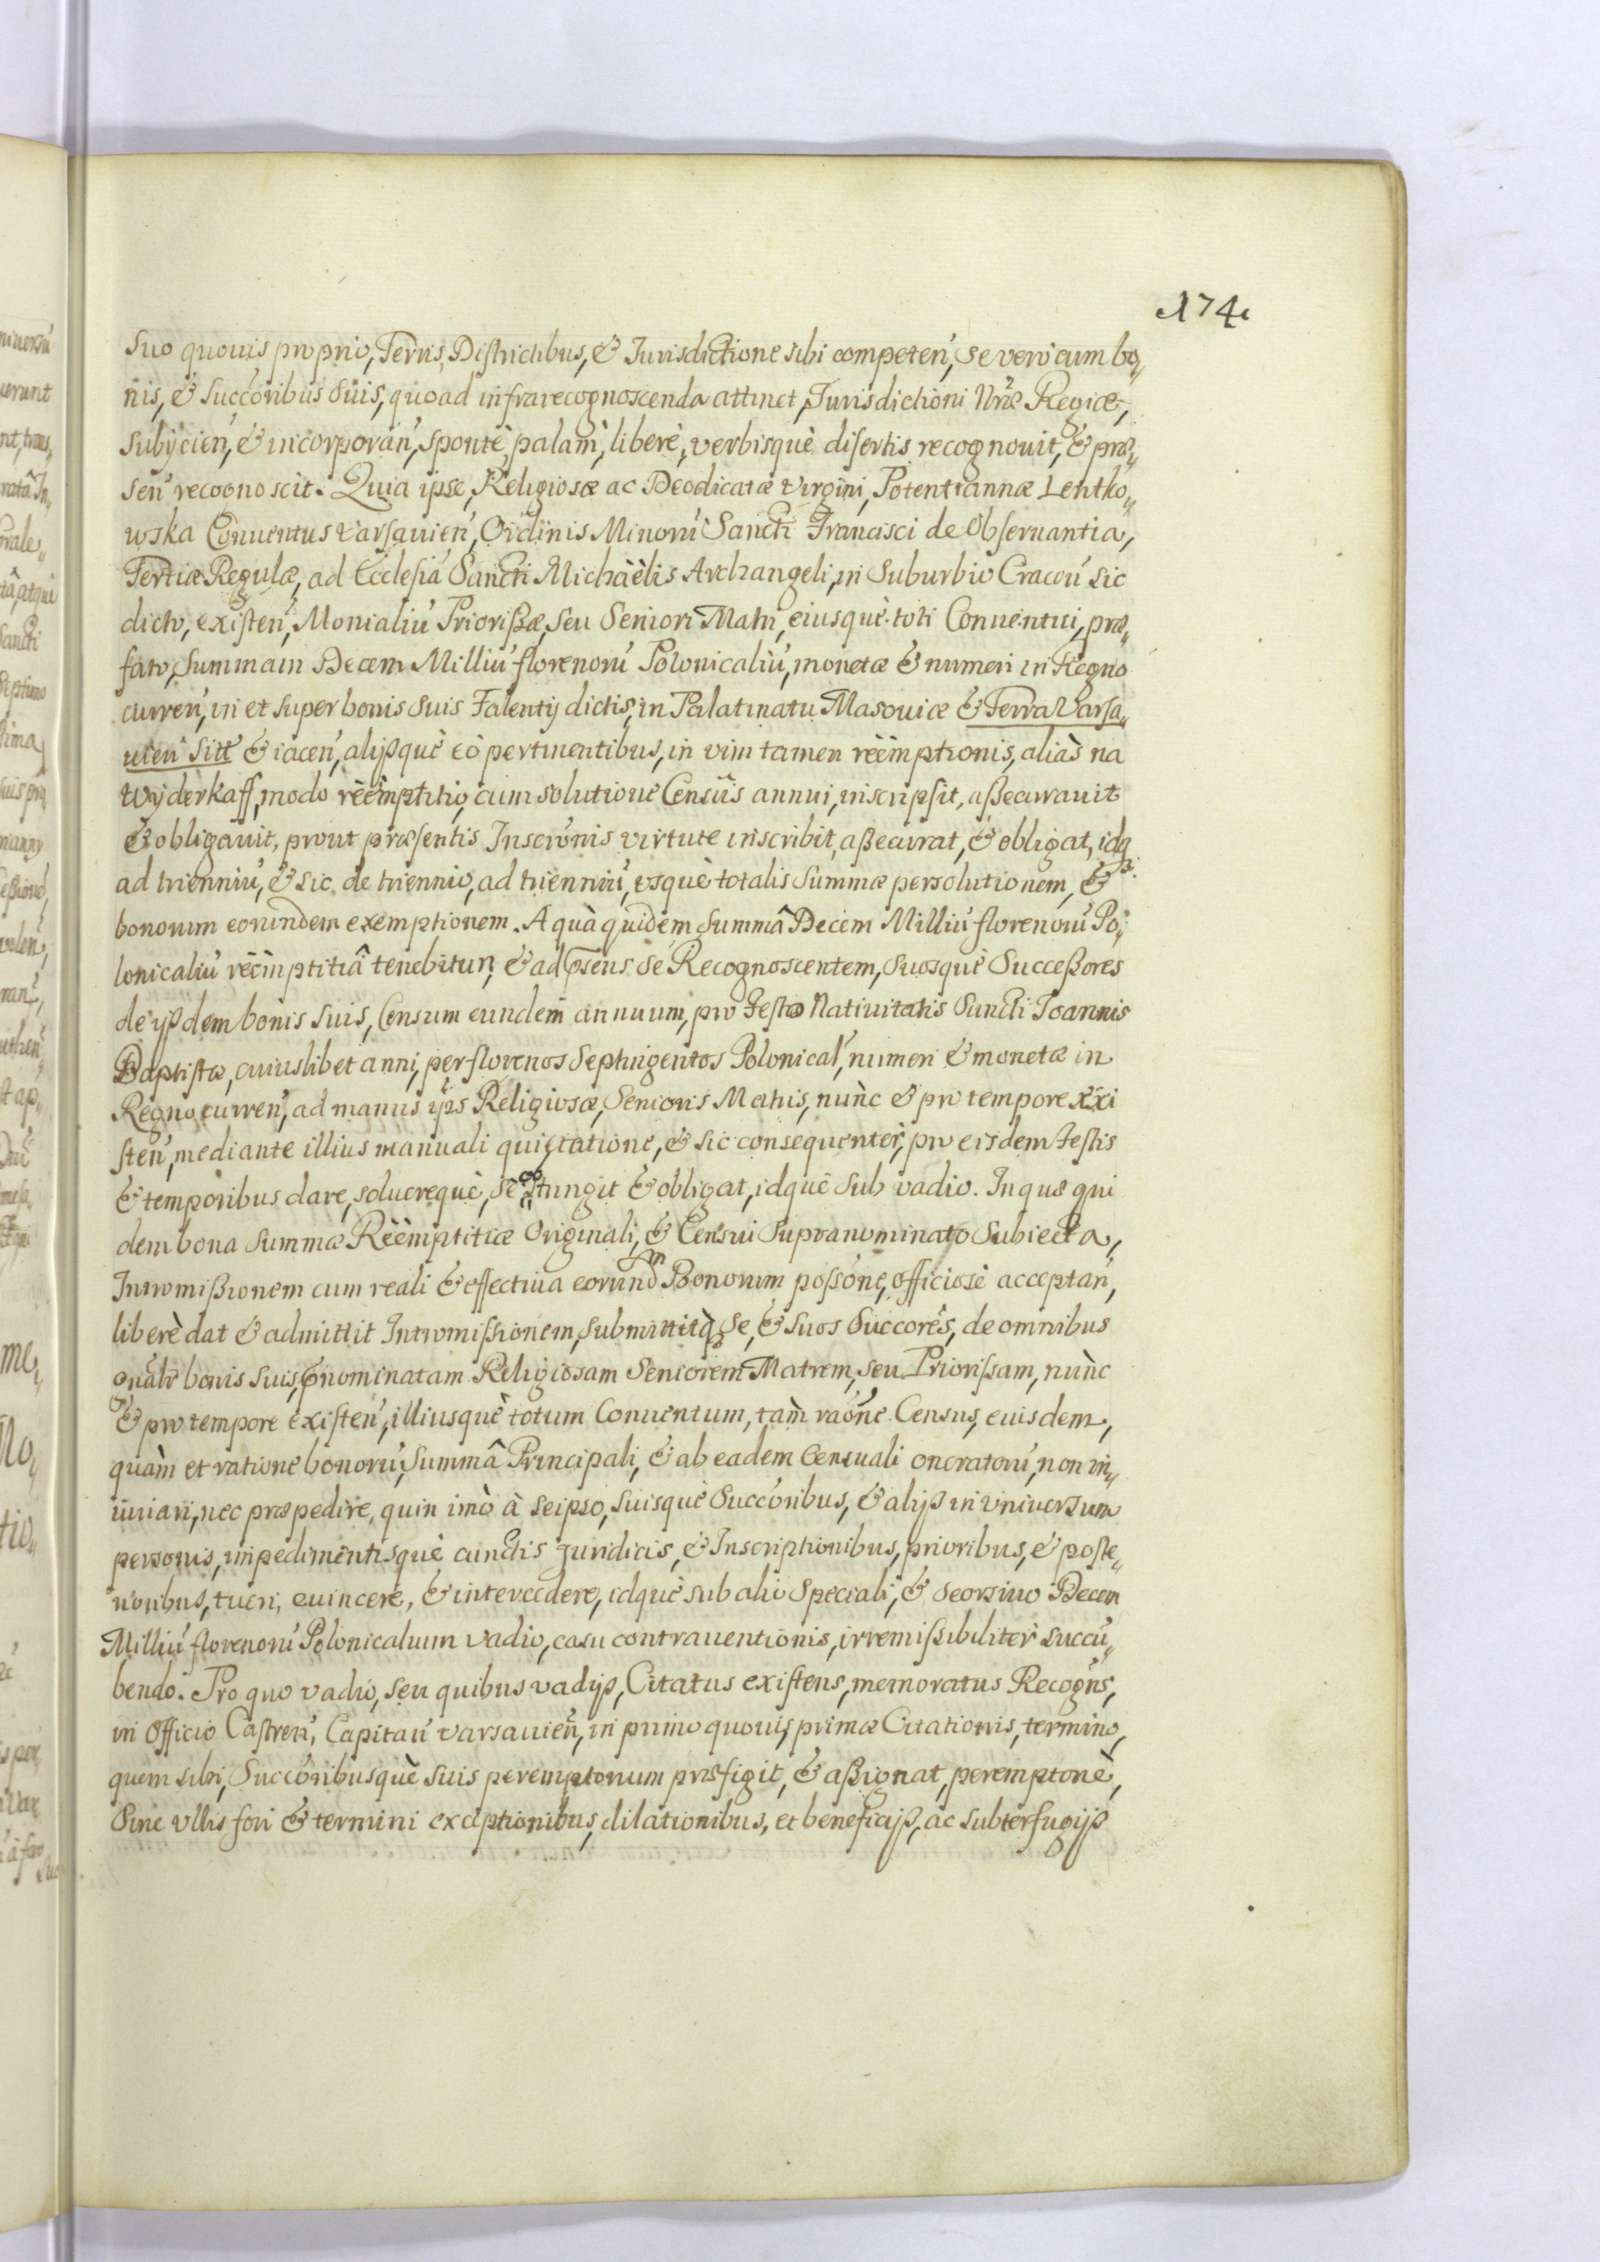 174.
suo quouis proprio, Terris, Districtibus, & Iurisdictione sibi competeń, se vero cum bo„
nis, & succoribus suis, quoad infrarecognoscenda attinet, Iurisdictioni Nrae Regiae,
subijcień, & incorporań, sponte, palam, libere, verbisquè disertis recognouit, & prae„
seń recognoscit. Quia ipse, Religiosae ac Deodicatae Virgini, Potentiannae Lentko„
wska Conuentus Varsauień, Ordinis Minorú Sancti Francisci de Obseruantia,
Tertiae Regulae, ad Ecclesiá Sancti Michàèlis Archangeli, in Suburbio Cracoú sic
dicto, existeń, Monialiú Priorißae, seu Seniori Matri, eiusquè toti Conuentui, prae„
fato, Summam Decem Milliú florenorú Polonicaliú, monetae & numeri in Regno
curreń, in et super bonis suis Falenty dictis, in Palatinatu Masouiae & Terra Varsa„
uień sitt & iaceń, alijsquè eò pertinentibus, in vim tamen rèèmptionis, aliàs na
Wyderkaff, modo rèèmptitio, cum solutione Censûs annui, inscripsit, aßecurauit
& obligauit, prout praesentis Inscrónis virtute inscribit, aßecurat, & obligat, idq
ad trienniú, & sic de triennio, ad trienniú, vsquè totalis summae persolutionem, &
bonorum eorundem exemptionem. A quà quidem summâ Decem Milliú florenorú Po„
lonicaliú rèèmptitiâ tenebitur, & ad se Recognoscentem, suosquè Succeßores
de ijsdem bonis suis, Censum eundem annuum, pro festo Natiuitatis Sancti Ioannis
Baptistae, cuiuslibet anni, per florenos Septingentos Polonical, numeri & monetae in
Regno curreń, ad manus ips Religiosae, Senioris Matris, nunc & pro tempore exi
steń, mediante illius manuali quictatione, & sic consequenter, pro eisdem festis
& temporibus dare, soluerequè, se stringit & obligat, idquè sub vadio. In quae qui
dem bona summae Rèèmptitiae Originali, & Censui supranominato subiecta,
Intromißionem cum reali & effectiua eorundm Bonorum possone, officiose acceptań,
liberè dat & admittit Intromissionem, submittitq se, & suos Succores, de omnibus
gnalr bonis suis, nominatam Religiosam Seniorem Matrem, seu Priorissam, nunc
& pro tempore existeń, illiusquè totum Conuentum, tàm raóne Census, euisdem,
quàm et ratione bonorú, summâ Principali, & ab eadem Censuali oneratorú, non in„
iuriari, nec praepedire, quin imò à seipso, suisquè Succoribus, & alijs in vniuersum
personis, impedimentisquè cunctis Iuridicis, & Inscriptionibus, prioribus, & poste„
rioribus, tueri, euincere, & intercedere, idquè sub alio speciali, & seorsiuo Decem
Milliú florenorú Polonicalium vadio, casu contrauentionis, irremissibiliter succú„
bendo. Pro quo vadio, seu quibus vadijs, Citatus existens, memoratus Recogńs,
in Officio Castreń, Capitań Varsauień, in primo quouis, primae Citationis, termino,
quem sibi, Succoribusquè suis peremptorium praefigit, & aßignat, peremptoriè,
sine vllis fori & termini exceptionibus, dilationibus, et beneficijs, ac subterfugijs